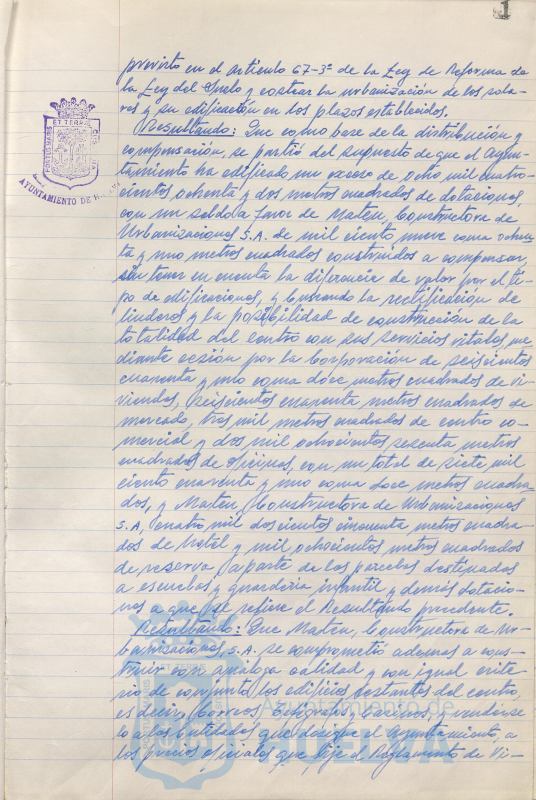 1
previsto en el artículo 67-3º de la Ley de Reforma de
la Ley del Suelo y costear la urbanización de los sola-
res y su edificación en los plazos establecidos.
Resultando: Que como base de la distribución y
compensación, se partió del supuesto de que el Ayun-
tamiento ha edificado un exceso de ocho mil cuatro-
cientos ochenta y dos metros cuadrados de dotaciones,
con un saldo a favor de Maten, Constructora de
Urbanizaciones S.A. de mil ciento nueve coma ochen-
ta y uno metros cuadrados construidos a compensar,
sin tener en cuenta la diferencia de valor por el ti-
po de edificaciones, y buscando la rectificación de
linderos y la posibilidad de construcción de la
totalidad del centro con sus servicios vitales, me-
diante cesión por la Corporación de seiscientos
cuarenta y uno coma doce metros cuadrados de vi-
viendas, seiscientos cuarenta metros cuadrados de
mercado, tres mil metros cuadrados de centro co-
mercial y dos mil ochocientos sesenta metros
cuadrados de oficinas, con un total de siete mil
ciento cuarenta y uno coma doce metros cuadra-
dos, y Maten, Constructora de Urbanizaciones
S.A. cuatro mil doscientos cincuenta metros cuadra-
dos de Hotel y mil ochocientos metros cuadrados
de reserva, aparte de las parcelas destinadas
a escuelas y guardería infantil y demás dotacio-
nes a que se refiere el Resultando precedente.
Resultando: Que Maten, Constructora de Ur-
banizaciones, S.A. se comprometió además a cons-
truir con análoga calidad y con igual crite-
rio de conjunto los edificios restantes del centro,
es decir, Correos, Telégrafos y Casinos, y vendérse-
lo a las Entidades que designe el Ayuntamiento, a
los precios oficiales que fije el Reglamento de Vi-
PORTUS MARIS ET TERRAE CUSTODIA
AYUNTAMIENTO DE HUELVA
Ayuntamiento de
HUELVA